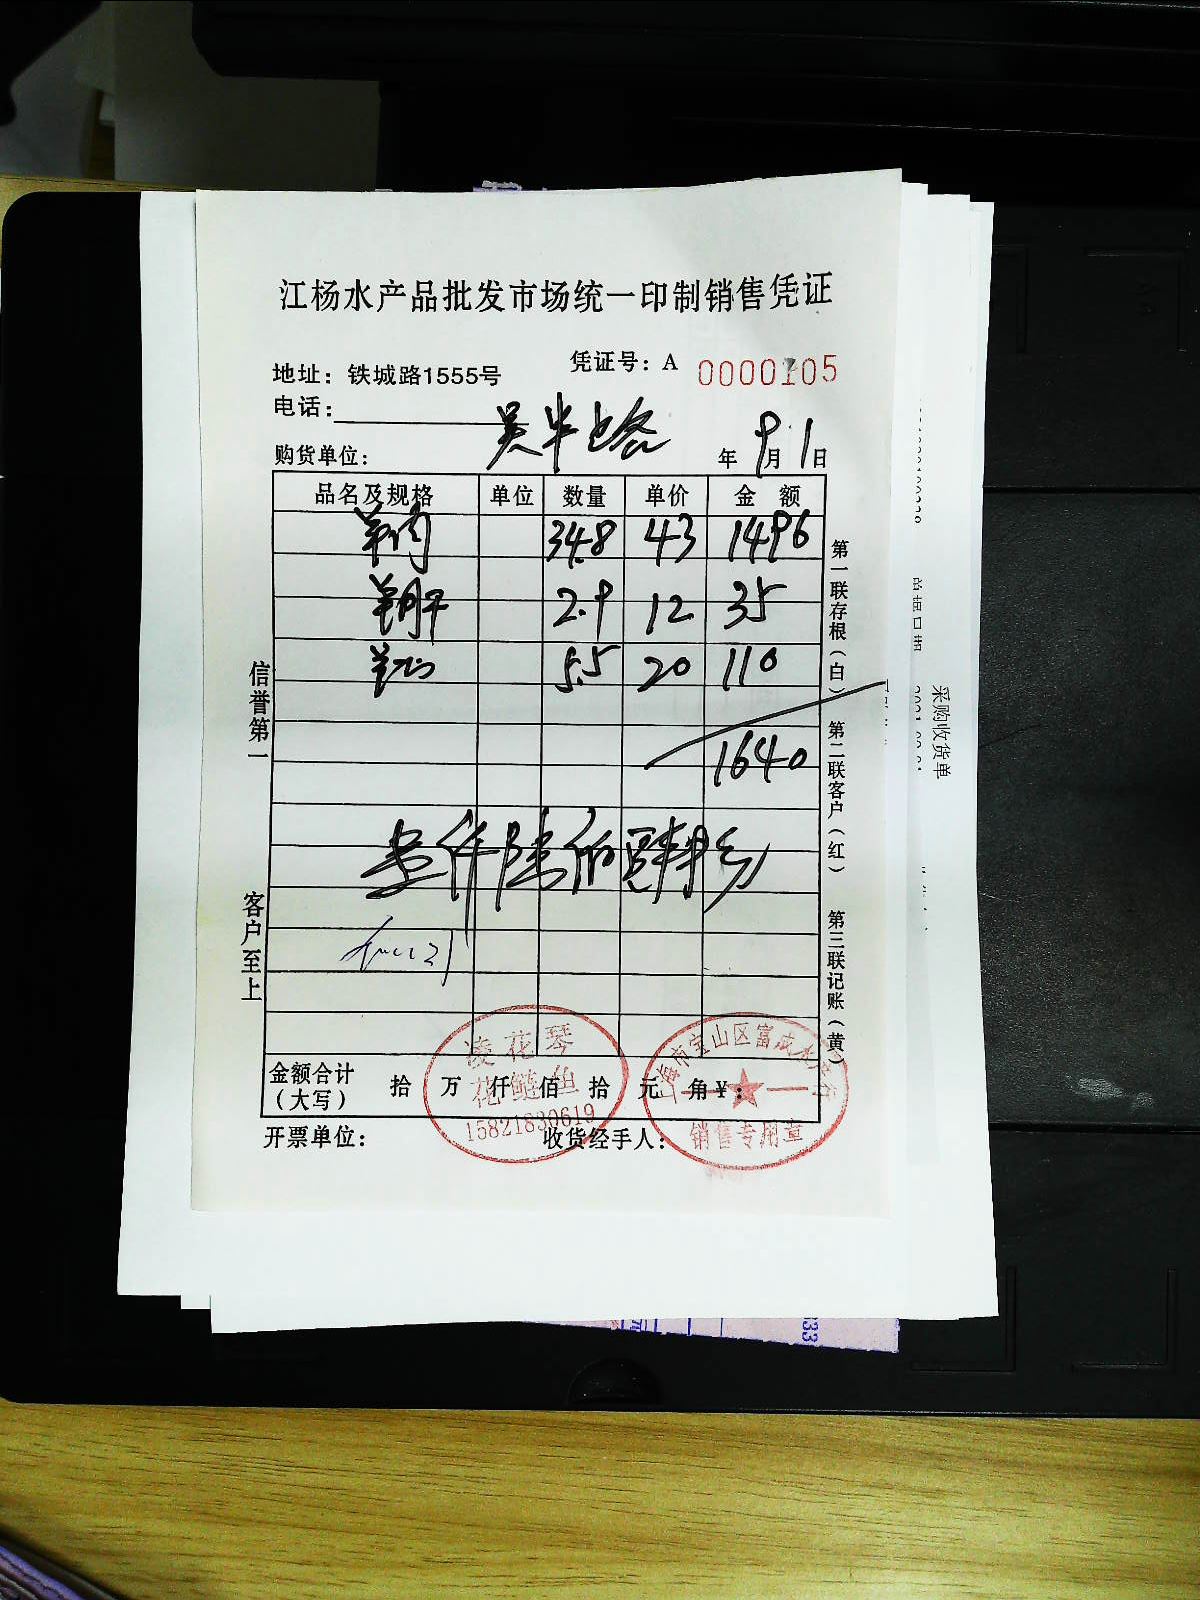 江杨水产品批发市场统一印制销售凭证
地址：铁城路1555号
凭证号：A 0000105
电话：
购货单位：
年 9月 1日
品名及规格 单位 数量 单价 金额
羊肉 34.8 43 1496
羊肝 2.9 12 35
5.5 20 110
1640
壹仟陆佰肆拾
金额合计（大写） 拾 万 仟 佰 拾 元 角 ¥：
开票单位：
收货经手人：
信誉第一
客户至上
第一联存根（白） 第二联客户（红） 第三联记账（黄）
凌花琴
花鲢鱼
15821830619
上海市宝山区富成水产行
销售专用章
采购收货单